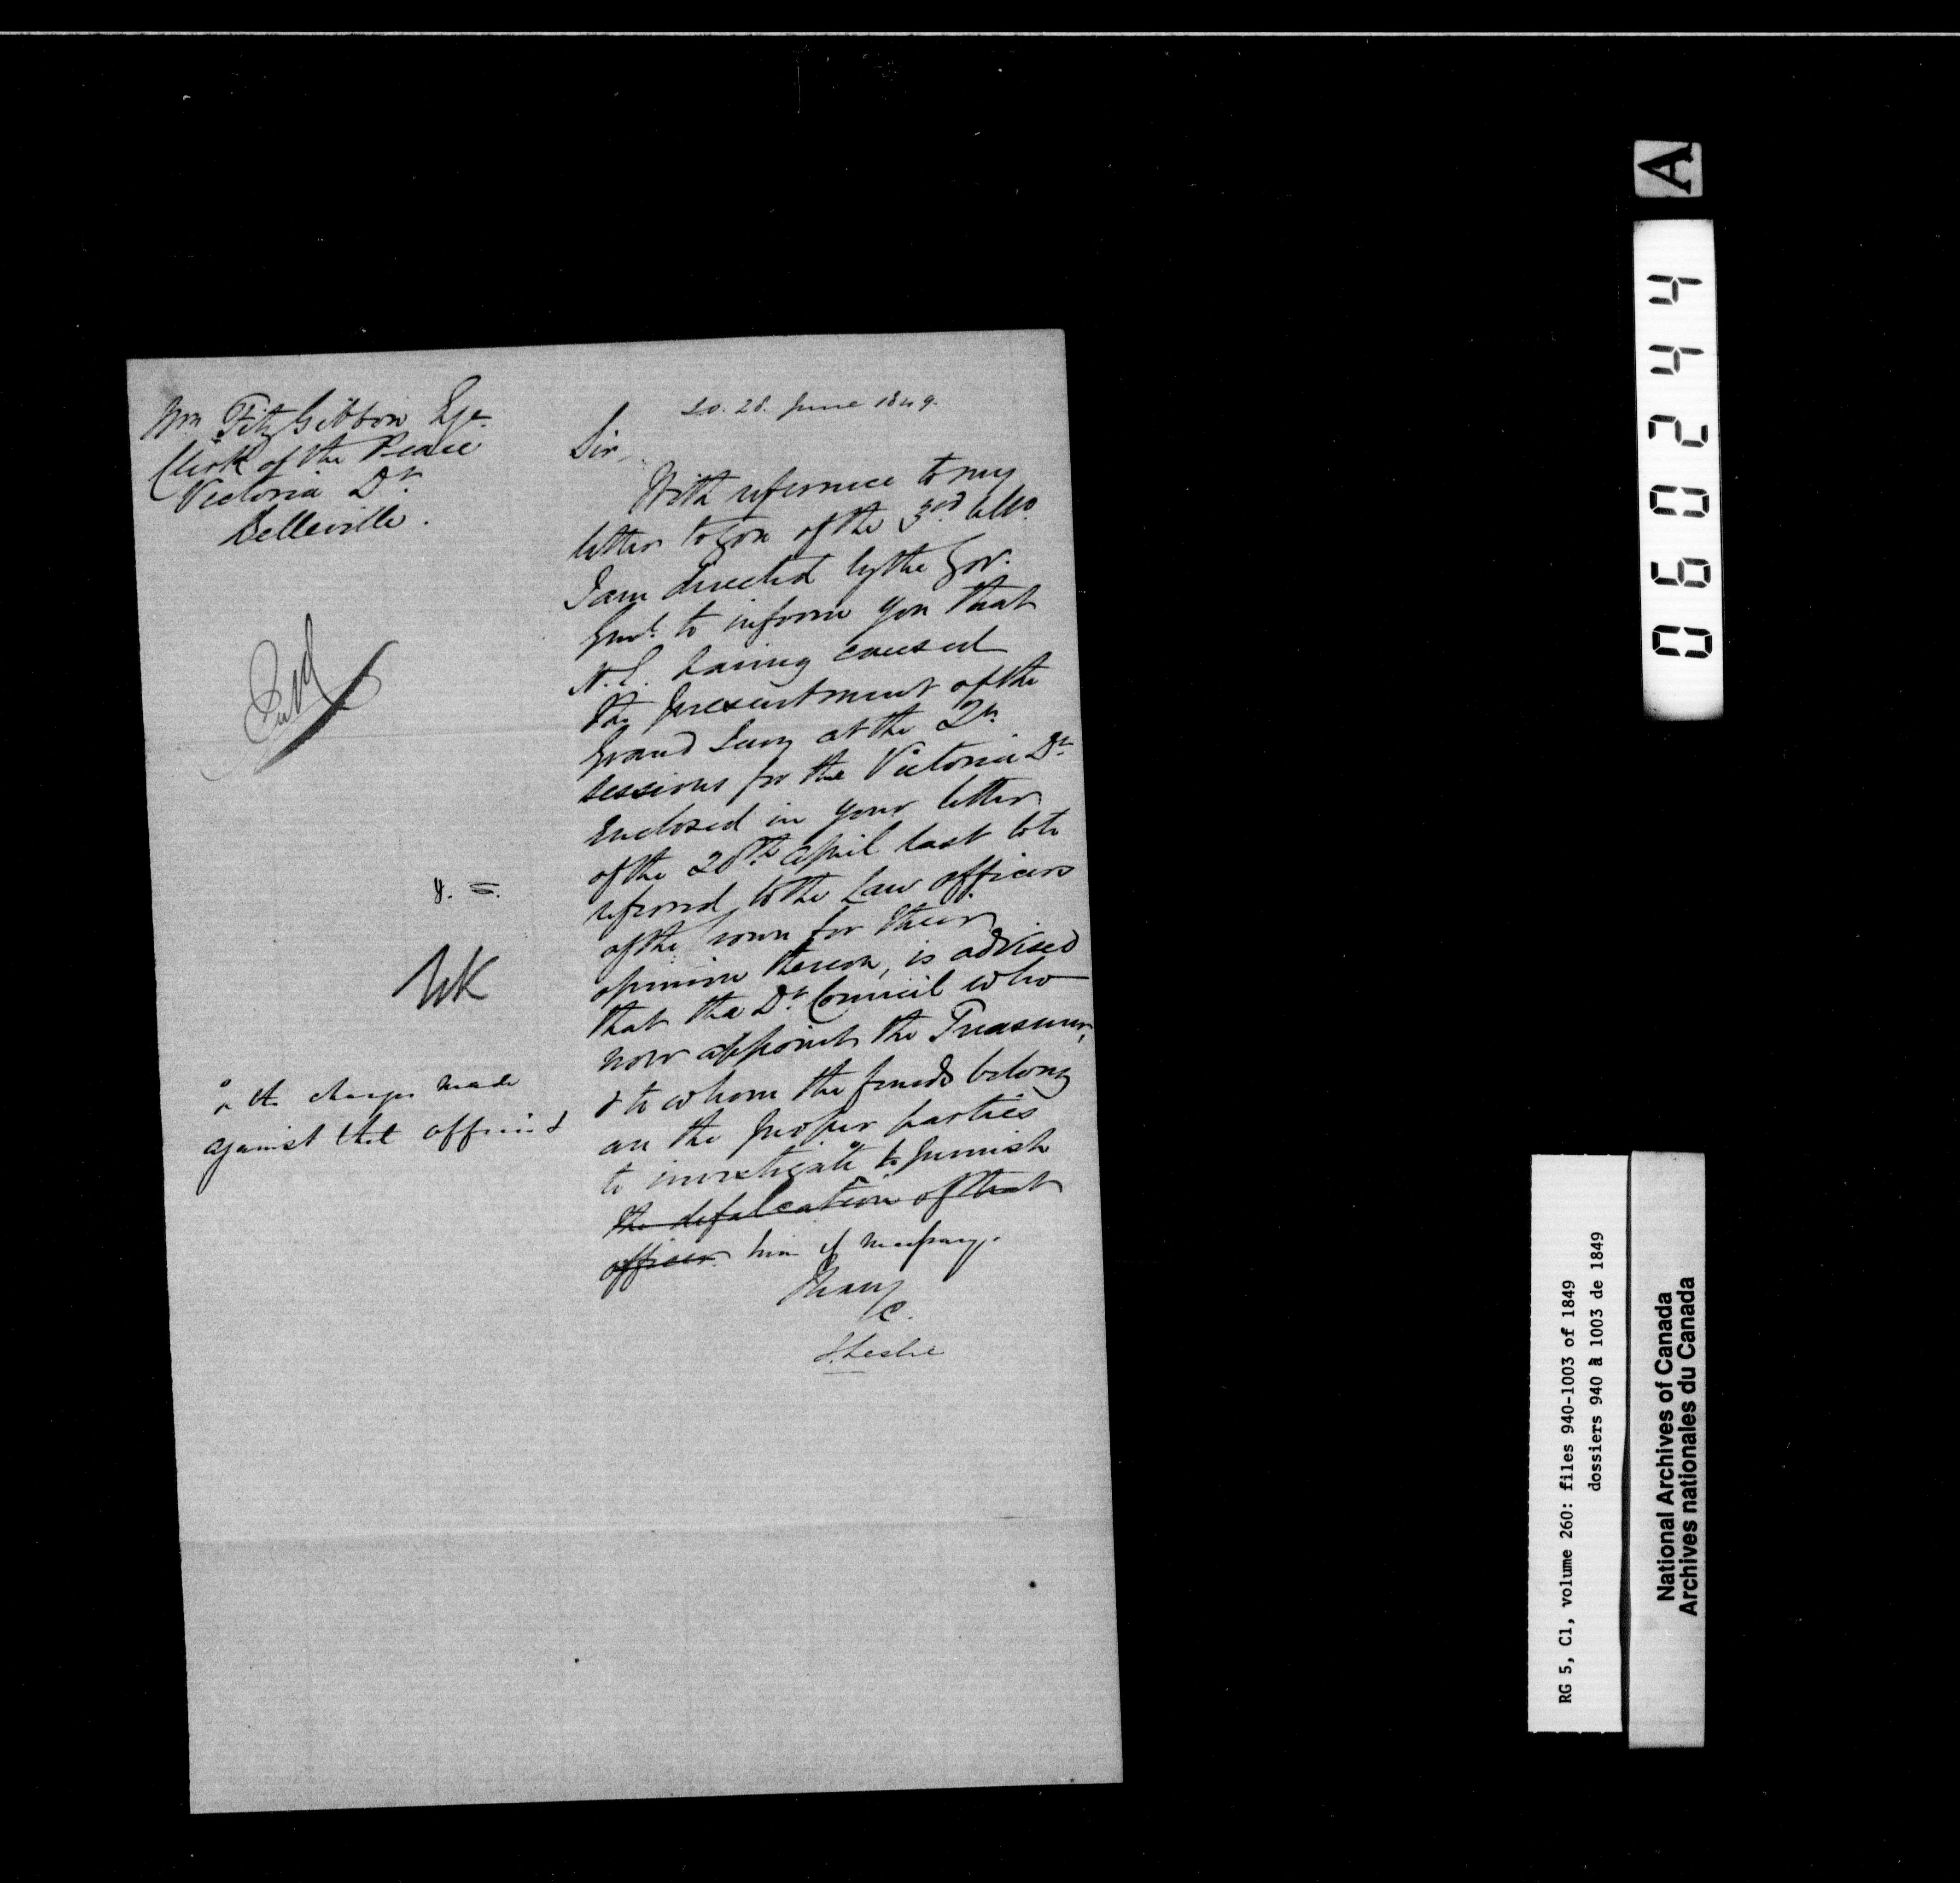 Wm FitzGibbon Esqr
Clerk of the Peace
Victoria Dt
Belleville.
S.O. 28. June 1849.
Sir,
With reference to my
letter to you of the 3rd ulto.
I am directed by the Gov.
Genl. to inform you that
H.E. having caused
the presentment of the
Grand Jury at the Qr.
sessions for the Victoria Dt.
enclosed in your letter
of the 20th. April last to be
referred to the Law officers
of the Crown for their
opinion thereon, is advised
that the Dt. Council who
now appoint the Treasurer,
& to whom the funds belong
are the proper parties
to investigate to punish
the defalcation of that
officer him if necessary.
I have
&c.
J. Leslie
the charges made
against that officer &
A
060244
RG 5, C1, volume 260: files 940-1003 of 1849
dossiers 940 à 1003 de 1849
National Archives of Canada
Archives nationales du Canada